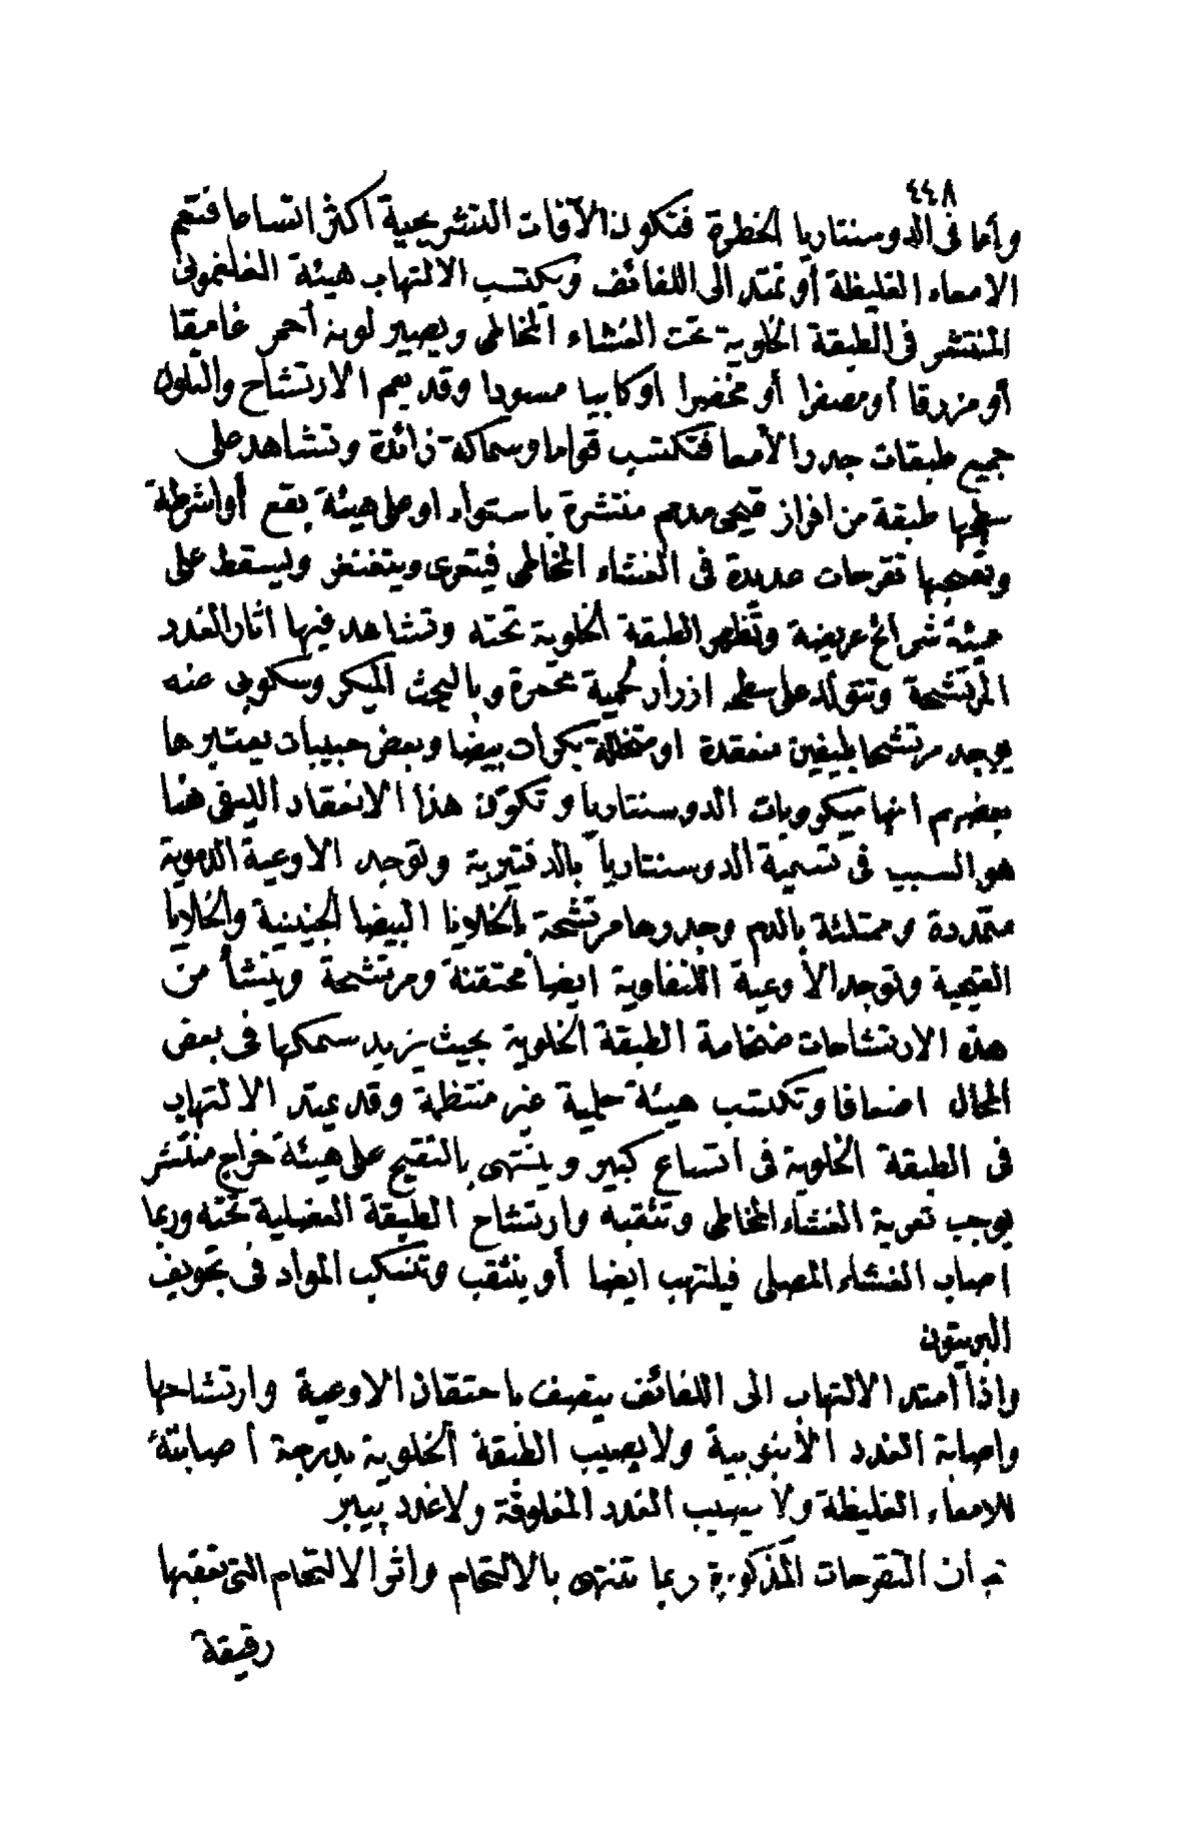 ٤٤٨
وأما فى الدوسنتاريا الخطرة فتكون الآفات التشريحية أكثر اتساعا فتعم
الامعاء الغليظة أو تمتد الى اللفائف ويكتسب الالتهاب هيئة الفلغمونى
المنتشر فى الطبقة الخلوية تحت الغشاء المخاطى ويصير لونه أحمر غامقا
أو مزرقا أو مصفرا أو مخضرا أو كابيا مسودا وقد يعم الارتشاح والتلون
جميع طبقات جدر الأمعا فتكتسب قواما وسماكة زائدة وتشاهد على
سطحها طبقة من افراز قيحى مدمم منتشرة باستواء او على هيئة بقع أو اشرطة
وتصحبها تقرحات عديدة فى الغشاء المخاطى فيتعرى ويتغنغر ويسقط على
هيئة شرائح عريضة وتظهر الطبقة الخلوية تحته وتشاهد فيها اثار الغدد
المرتشحة وتتولد على سطحه ازرار لحمية محمرة وبالبحث الميكروسكوبى عنه
يوجد مرتشحا بليفين منعقدة او متخللة بكرات بيضا وبعض حبيبات يعتبرها
بعضهم انها ميكروبات الدوسنتاريا وتكون هذا الانعقاد الليفى هنا
هو السبب فى تسمية الدوسنتاريا بالدفتيرية وتوجد الاوعية الدموية
متمددة وممتلئة بالدم وجدرها مرتشحة بالخلايا البيضا الجنينية والخلايا
القيحية وتوجد الأوعية اللنفاوية ايضا محتقنة ومرتشحة وينشأ من
هذه الارتشاحات ضخامة الطبقة الخلوية بحيث يزيد سمكها فى بعض
المحال اضعافا وتكتسب هيئة حلمية غير منتظمة وقد يمتد الالتهاب
فى الطبقة الخلوية فى اتساع كبير وينتهى بالتقيح على هيئة خراج منتشر
يوجب تعرية الغشاء المخاطى وتثقبه وارتشاح الطبقة العضلية تحته وربما
اصاب الغشاء المصلى فيلتهب ايضا أو ينثقب وتنسكب المواد فى تجويف
البريتون
واذا امتد الالتهاب الى اللفائف يتصف باحتقان الاوعية وارتشاحها
واصابة الغدد الأنبوبية ولا يصيب الطبقة الخلوية بدرجة اصابته
للامعاء الغليظة ولا يصيب الغدد المغلوقة ولا غدد بيير
ثم أن التقرحات المذكورة ربما تنتهى بالالتحام واثر الالتحام التى تعقبها
رقيقة